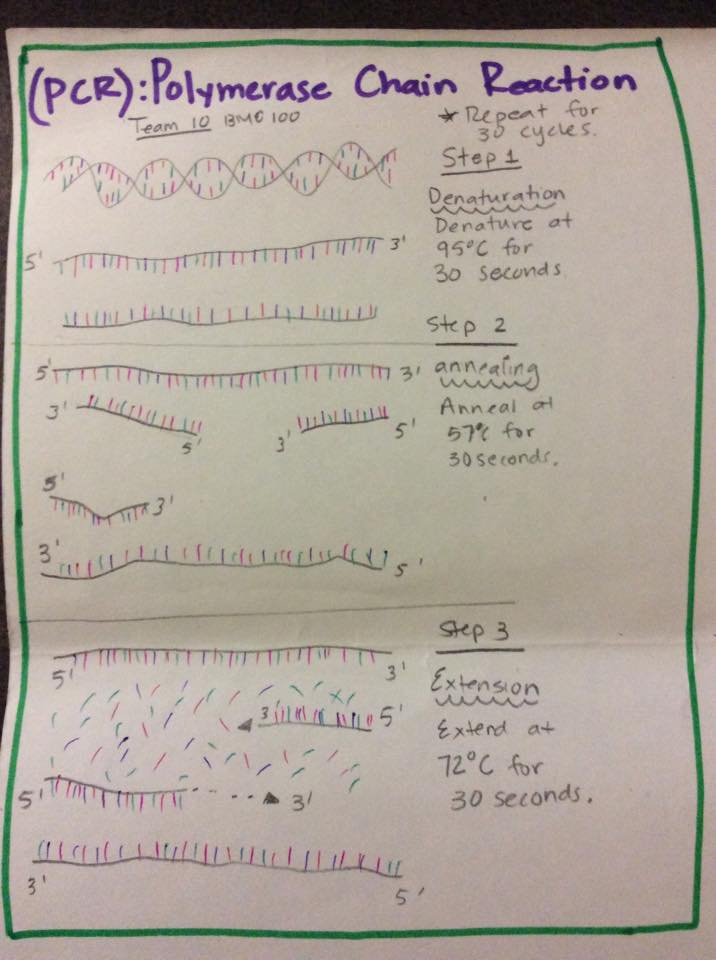 (PCR): Polymerase Chain Reaction
Team 10 BMC 100
* Repeat for
30 cycles.
Step 1
Denaturation
Denature at
95°C for
30 seconds
5' 3'
Step 2
annealing
Anneal at
57°C for
30 seconds.
5' 3'
3' 5' 3' 5'
5' 3'
3' 5'
Step 3
Extension
Extend at
72°C for
30 seconds.
5' 3'
3' 5'
5' 3'
3' 5'